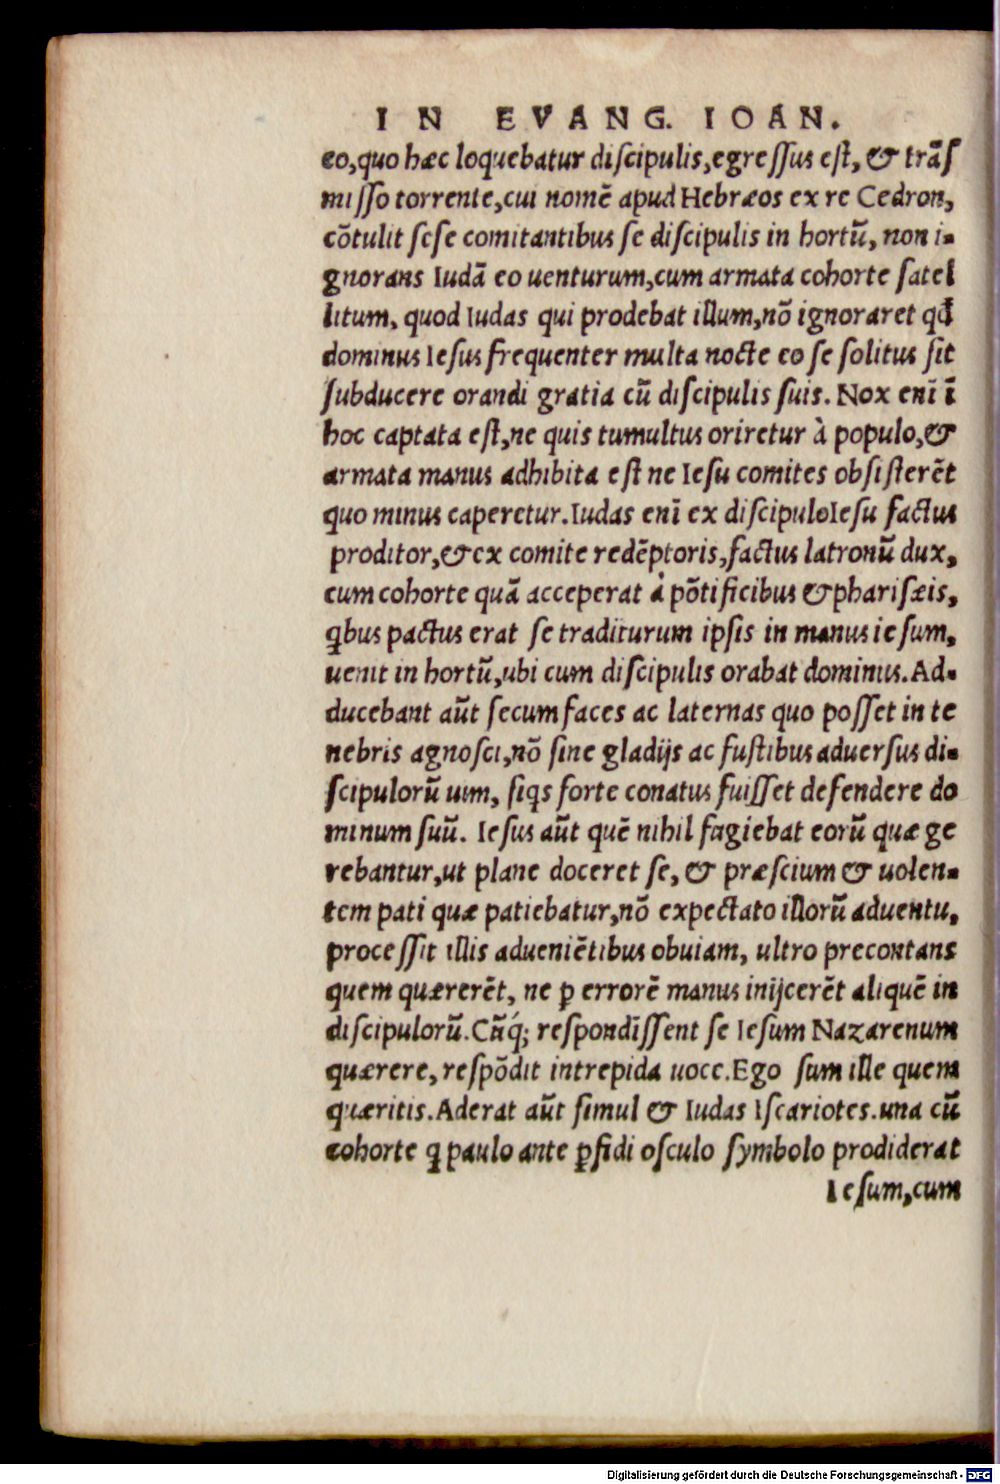 IN EVANG. IOAN.
eo,quo hæc loquebatur diſcipulis,egreſſus eſt, & trãſ
miſſo torrente,cui nomẽ apud Hebræos ex re Cedron,
cõtulit ſeſe comitantibus ſe diſcipulis in hortũ, non i-
gnorans Iudã eo uenturum,cum armata cohorte ſatel
litum, quod Iudas qui prodebat illum,nõ ignoraret qđ
dominus Ieſus frequenter multa nocte eo ſe ſolitus ſit
ſubducere orandi gratia cũ diſcipulis ſuis. Nox enĩ ĩ
hoc captata eſt,ne quis tumultus oriretur à populo,&
armata manus adhibita eſt ne Ieſu comites obſiſterẽt
quo minus caperetur.Iudas enĩ ex diſcipulo Ieſu factus
proditor,& ex comite redẽptoris,factus latronũ dux,
cum cohorte quã acceperat à põtificibus & phariſæis,
q̃bus pactus erat ſe traditurum ipſis in manus ieſum,
uenit in hortũ,ubi cum diſcipulis orabat dominus.Ad-
ducebant aũt ſecum faces ac laternas quo poſſet in te
nebris agnoſci,nõ ſine gladijs ac fuſtibus aduerſus di-
ſcipulorũ uim, ſiqs forte conatus fuiſſet defendere do
minum ſuũ. Ieſus aũt quẽ nihil fugiebat eorũ quæ ge
rebantur,ut plane doceret ſe, & præſcium & uolen-
tem pati quæ patiebatur,nõ expectato illorũ aduentu,
proceſſit illis adueniẽtibus obuiam, ultro precontans
quem quærerẽt, ne ꝑ errorẽ manus inijcerẽt aliquẽ in
diſcipulorũ.Cũq́; reſpondĩſſent ſe Ieſum Nazarenum
quærere,reſpõdit intrepida uoce.Ego ſum ille quem
quæritis.Aderat aũt ſimul & Iudas Iſcariotes.una cũ
cohorte q̃ paulo ante ꝑfidi oſculo ſymbolo prodiderat
Ieſum,cum
Digitalisierung gefördert durch die Deutsche Forschungsgemeinschaft - DFG